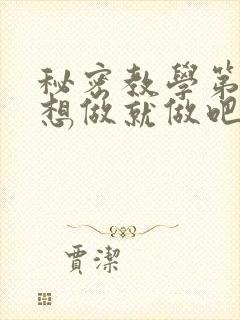 秘密教學第
想做就做吧
賈潔